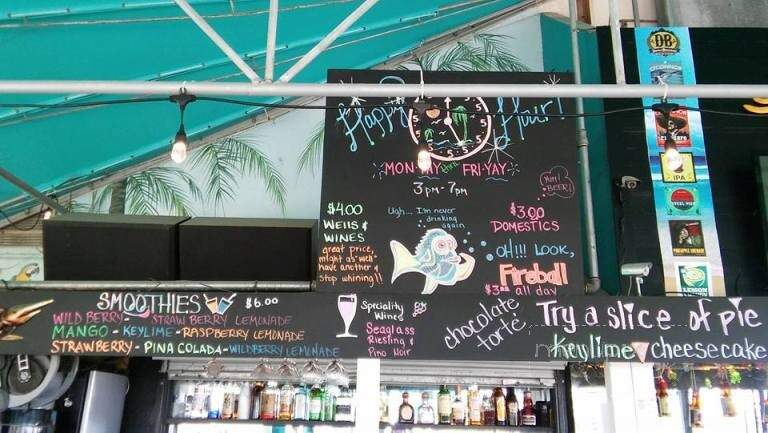 Happy Hour!
5 5 5 5 5
MON-DAY FRI-YAY
3PM-7PM
YUM! BEER!
$4.00
WELLS &
WINES
great price,
might as "well"
have another &
stop whining!!
Ugh... I'm never
drinking
again
$3.00
DOMESTICS
OH!!! LOOK,
Fireball
$3.00 all day
DB
IPA
SMOOTHIES $6.00
WILD BERRY - STRAWBERRY LEMONADE
MANGO - KEYLIME - RASPBERRY LEMONADE
STRAWBERRY - PINA COLADA - WILDBERRY LEMONADE
Speciality
Wines
Seaglass
Riesling &
Pino Noir
chocolate
torte
Try a slice of pie
Keylime cheesecake